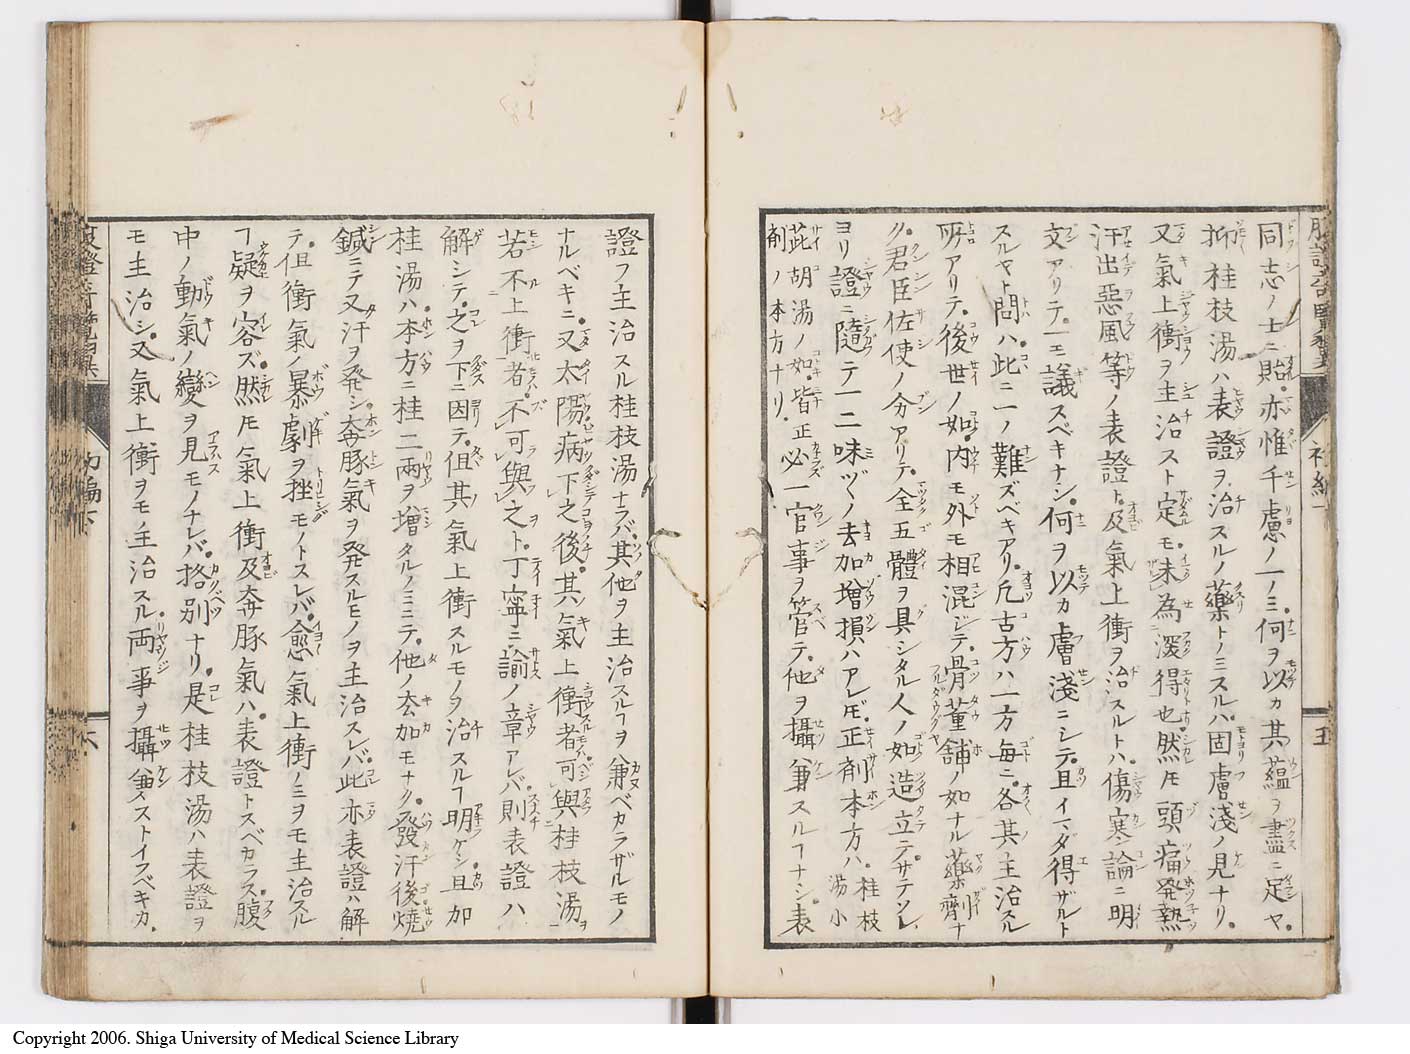 同志ノ士ニ貽。亦惟千慮ノ一ノミ。何ヲ以カ其蘊ヲ盡ニ足ヤ。
抑桂枝湯ハ表證ヲ治スルノ藥トノミスルハ。固膚淺ノ見ナリ。
又氣上衝ヲ主治スト定モ。未為深得也。然𪜈頭痛発熱
汗出惡風等ノ表證ト。及氣上衝ヲ治スルトハ。傷寒論ニ明
文アリテ。一モ議スベキナシ。何ヲ以カ膚淺ニシテ。且イマダ得ザルト
スルヤト問ハ。此ニ一ノ難ズベキアリ。凡古方ハ一方毎ニ。各其主治スル
所アリテ。後世ノ如。内モ外モ相混ジテ。骨董舗ノ如ナル藥劑ナ
ク。君臣佐使ノ分アリテ。全五體ヲ具シタル人ノ如造立テ。サテソレ
ヨリ證ニ隨テ一二味ヅヽノ去加增損ハアレ𪜈。正剤本方ハ。桂枝湯小
茈胡湯ノ如。皆正剤ノ本方ナリ。必一官事ヲ管テ。他ヲ攝兼スルヿナシ。表
證ヲ主治スル桂枝湯ナラバ。其他ヲ主治スルヿヲ兼ベカラザルモノ
ナルベキニ。又太陽病。下之後。其氣上衝者。可與桂枝湯。
若不上衝者。不可與之ト。丁寧ニ諭ノ章アレバ。則表證ハ
解シテ。之ヲ下ニ因テ。但其氣上衝スルモノヲ治スルヿ明ケシ。且加
桂湯ハ。本方ニ桂二兩ヲ増タルノミニテ。他ノ去加モナク。發汗後燒
鍼ニテ又汗ヲ発シ。奔豚氣ヲ発スルモノヲ主治スレバ。此亦表證ハ解
テ。但衝氣ノ暴劇ヲ挫モノトスレバ。愈氣上衝ノミヲモ主治スル
ヿ疑ヲ容ズ。然𪜈氣上衝及奔豚氣ハ。表證トスベカラズ。腹
中ノ動氣ノ變ヲ見モノナレバ。挌別ナリ。是桂枝湯ハ表證ヲ
モ主治シ。又氣上衝ヲモ主治スル。両事ヲ攝兼ストイフベキカ。